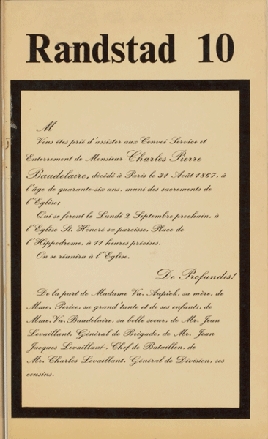 Randstad 10
M
Vous êtes prié d'assister aux Convoi Service et
Enterrement de Monsieur Charles Pierre
Baudelaire, décédé à Paris le 31 Août 1867, à
l'âge de quarante-six ans, muni des sacrements de
l'Eglise;
Qui se feront le Lundi 2 Septembre prochain, à
l'Eglise St. Honoré sa paroisse, Place de
l'Hippodrome, à 11 heures précises.
On se réunira à l'Eglise.
De Profundis!
De la part de Madame Vve Aupick, sa mère, de
Mme. sa grand tante et de ses enfants, de
Mme. Vve. Baudelaire, sa belle soeur, de Mr. Jean
Levaillant, Général de Brigade, de Mr. Jean
Jacques Levaillant, Chef de Bataillon, de
Mr. Charles Levaillant, Général de Division, ses
cousins.